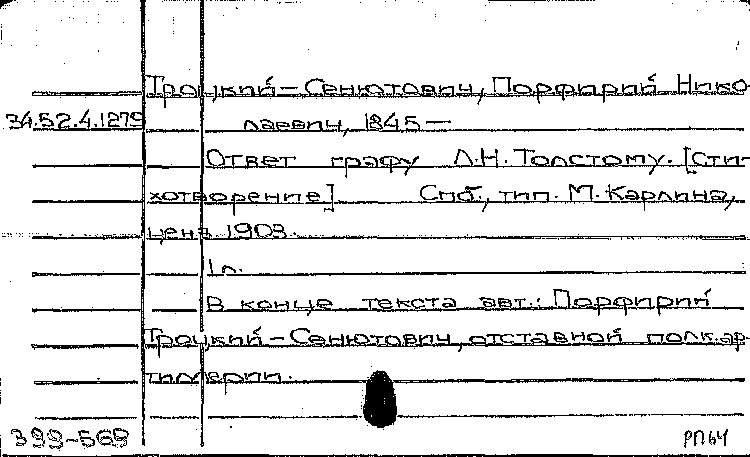 Троцкий-Сенютович, Порфирий Нико-
34.52.4.1279 лаевич, 1845—
Ответ графу Л.Н. Толстому. [Сти-
хотворение] Спб., тип. М. Карлина,
ценз. 1903.
1 л.
В конце текста авт.: Порфирий
Троцкий-Сенютович, отставной полк. ар-
тиллерии.
399-569 РП64